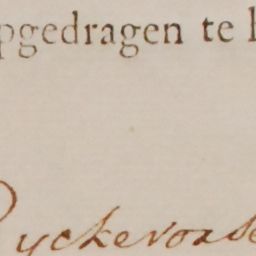 opgedragen te h
Ryckevorsse